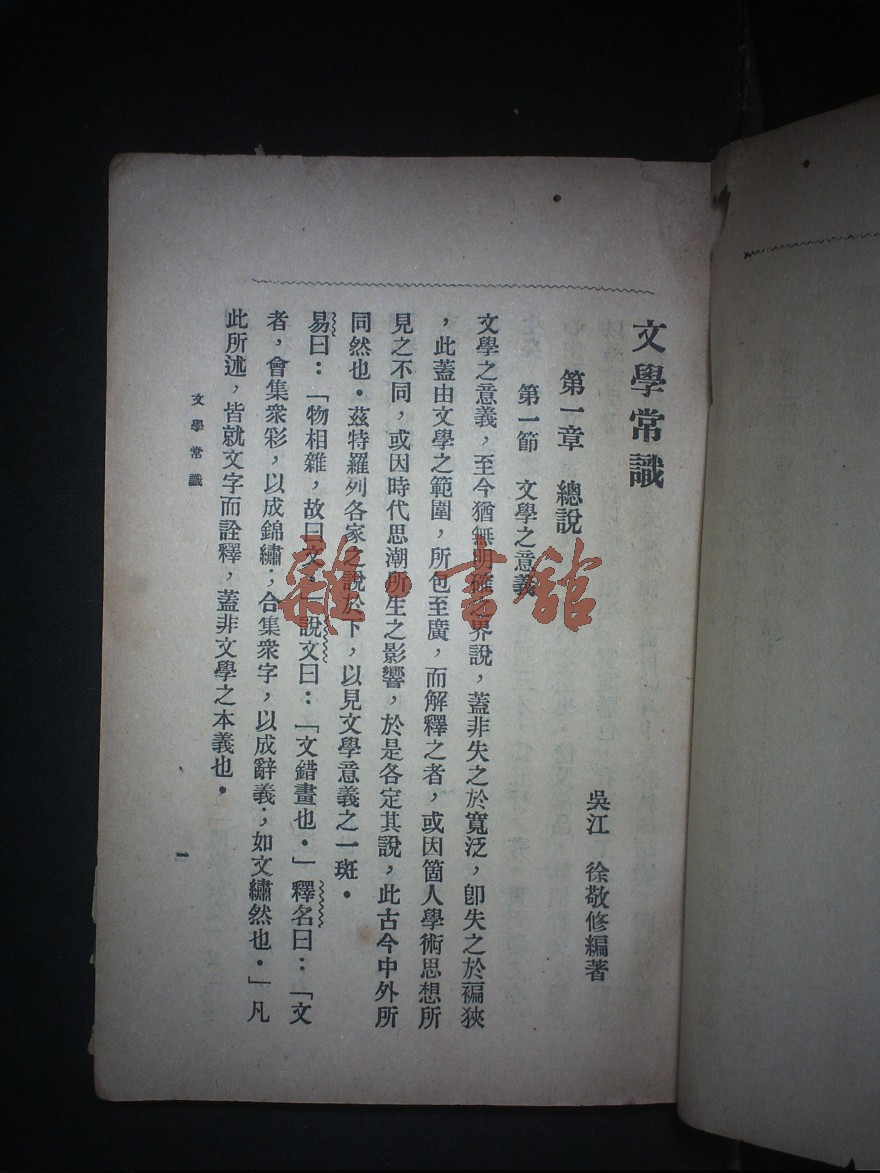 文學常識
吳江　徐敬修編著
第一章　總說
第一節　文學之意義
文學之意義，至今猶無明確之界說，蓋非失之於寬泛，卽失之於褊狹
，此蓋由文學之範圍，所包至廣，而解釋之者，或因箇人學術思想所
見之不同，或因時代思潮所生之影響，於是各定其說，此古今中外所
同然也。茲特羅列各家之說於下，以見文學意義之一斑。
易曰：「物相雜，故曰文。」說文曰：「文錯畫也。」釋名曰：「文
者，會集衆彩，以成錦繡；合集衆字，以成辭義；如文繡然也。」凡
此所述，皆就文字而詮釋，蓋非文學之本義也。
文學常識
一
雜·書館